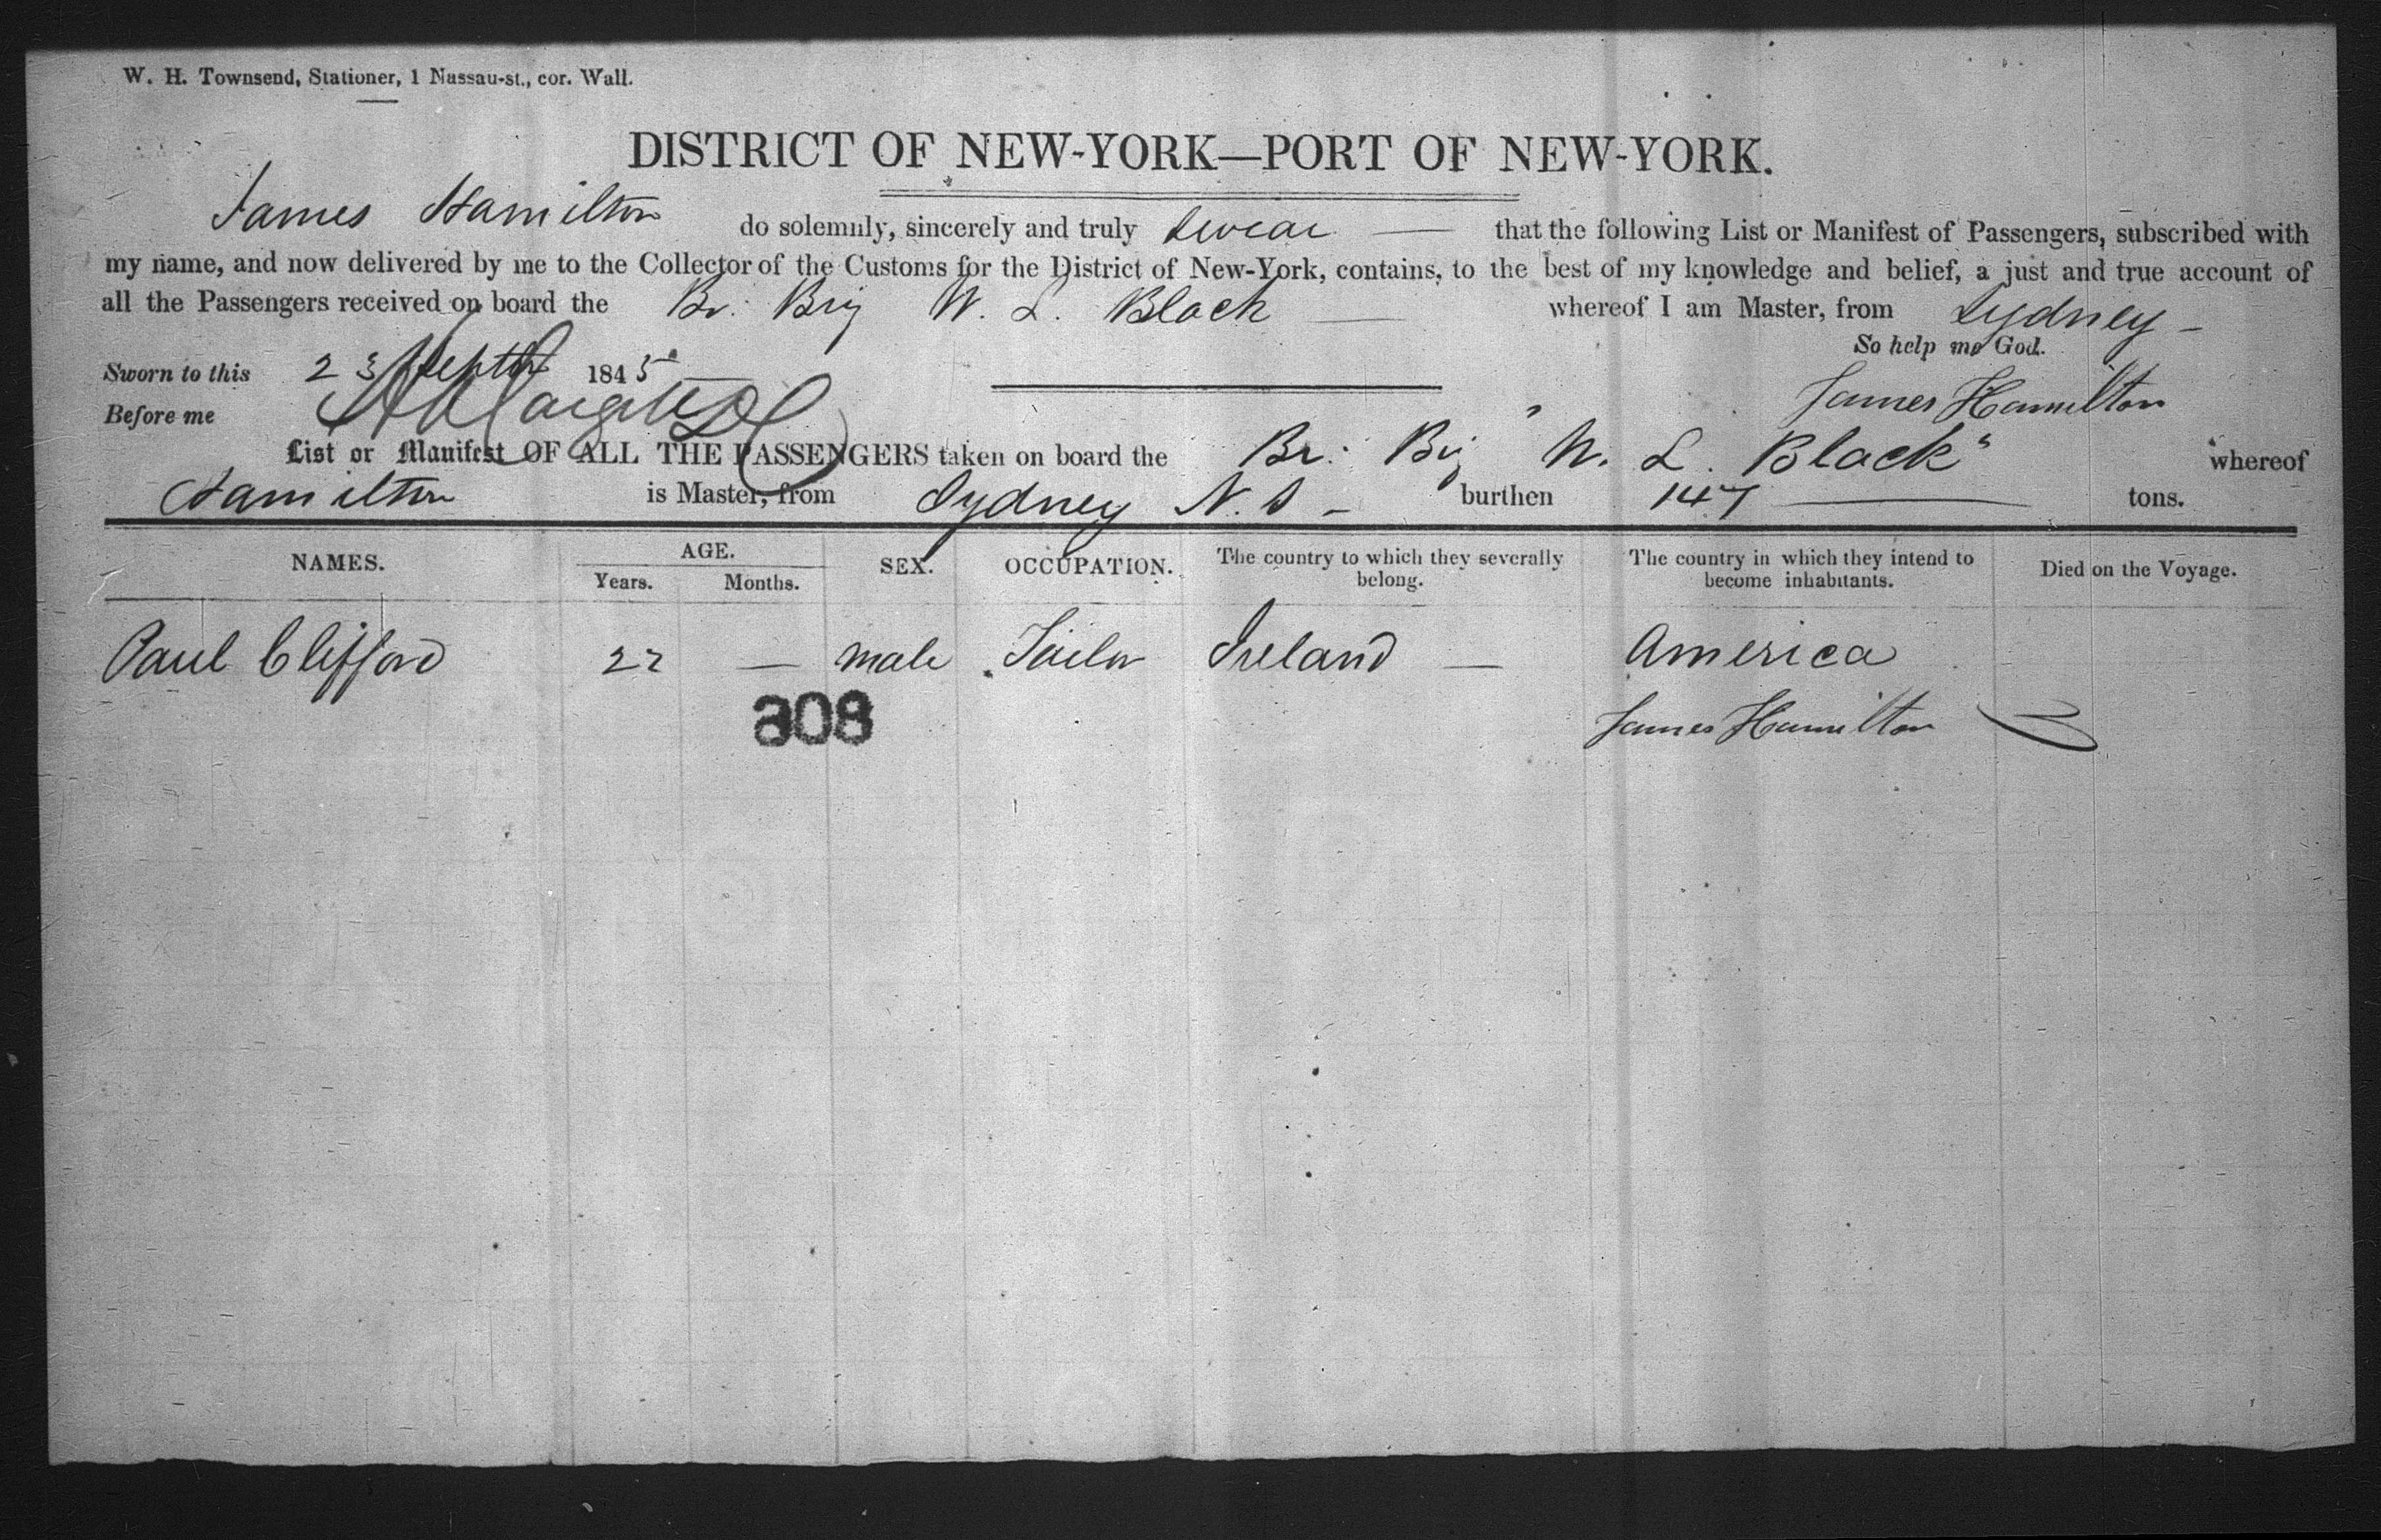 W. H. Townsend, Stationer, 1 Nassau-st., cor. Wall.
DISTRICT OF NEW-YORK—PORT OF NEW-YORK.
James Hamilton do solemnly, sincerely and truly swear — that the following List or Manifest of Passengers, subscribed with
my name, and now delivered by me to the Collector of the Customs for the District of New-York, contains, to the best of my knowledge and belief, a just and true account of
all the Passengers received on board the Br. Brig W. L. Black — whereof I am Master, from Sydney –
So help me God.
Sworn to this 23 Septbr 1845 —
James Hamilton
Before me
List or Manifest OF ALL THE PASSENGERS taken on board the Br. Brig "W. L. Black" whereof
Hamilton is Master, from Sydney N.S – burthen 147 — tons.
NAMES. AGE. SEX. OCCUPATION. The country to which they severally belong. The country in which they intend to become inhabitants. Died on the Voyage.
Years. Months.
Paul Clifford 22 — male Ireland — America
808
James Hamilton